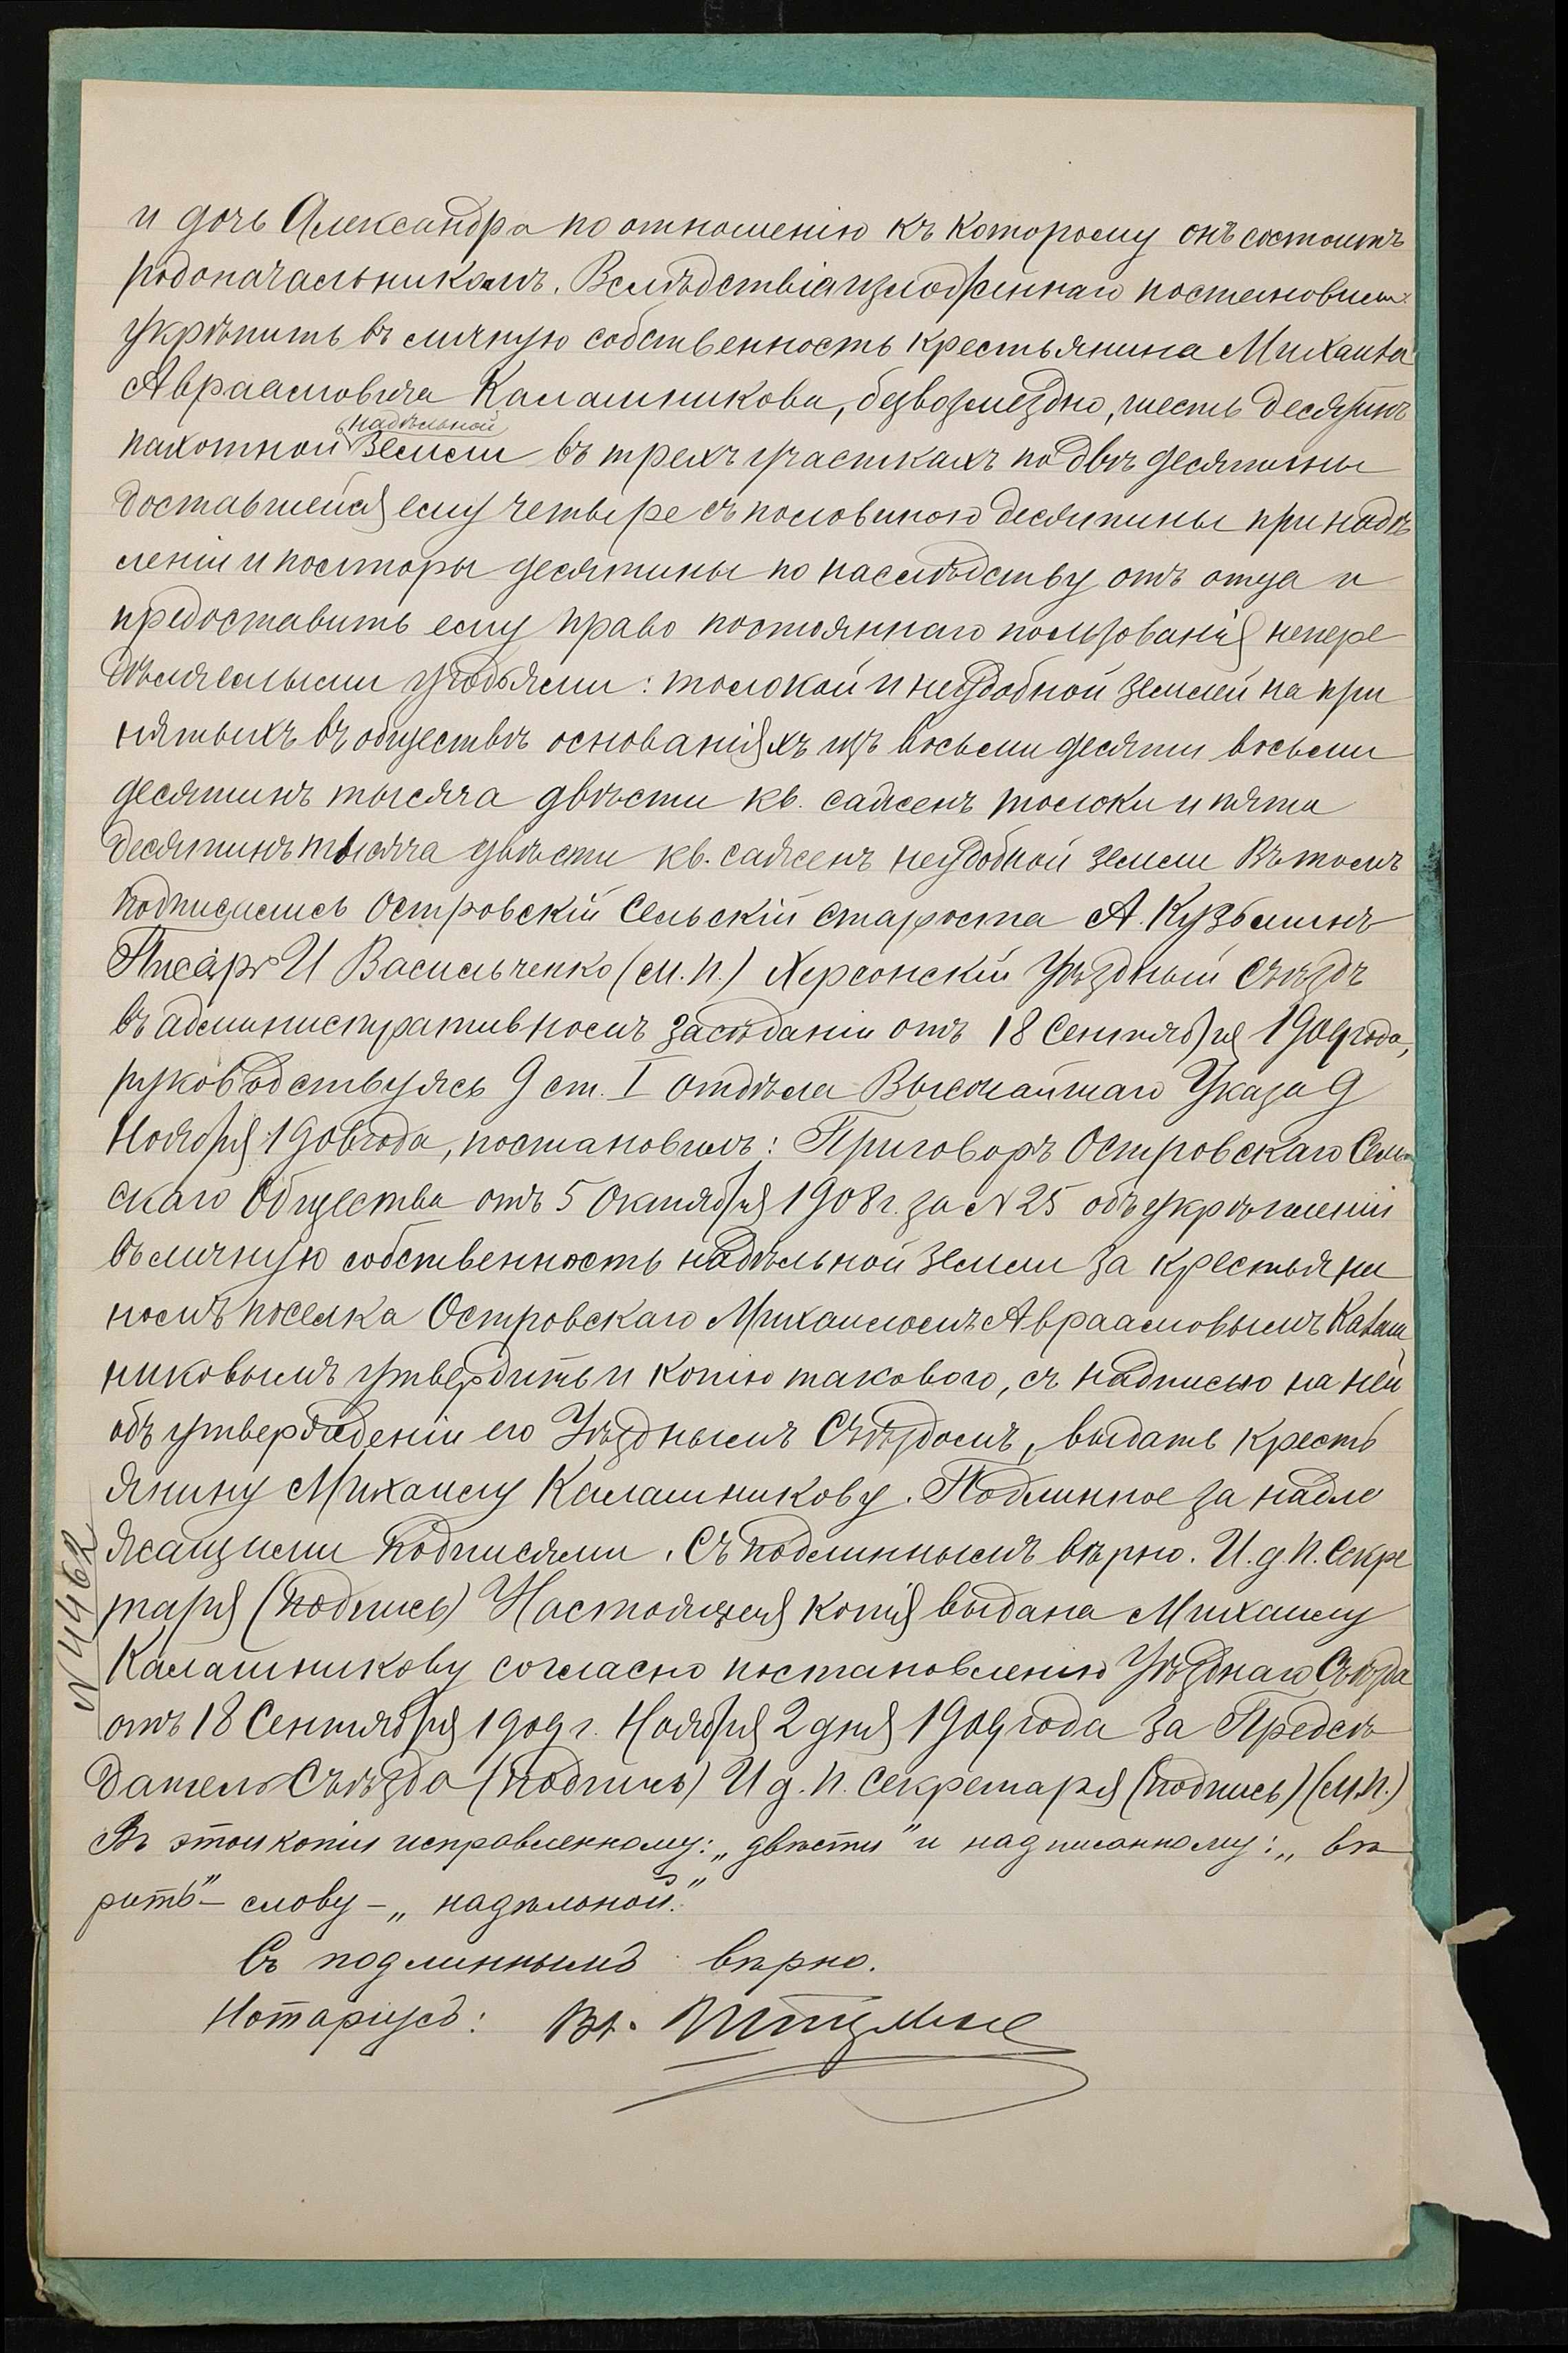 и дочь Александра по отношенію къ которому онъ состоитъ
родоначальникомъ. Вслѣдствіи изложеннаго постановили:
укрѣпить въ личную собственность крестьянина Михаила
Авраамовича Калашникова, безвозмездно, шесть десятинъ
надѣльной
пахотной земли въ трехъ участкахъ по двѣ десятины
доставшейся ему четыре съ половиною десятины при надѣ
леніи и полторы десятины по наслѣдству отъ отца и
предоставить ему право постояннаго пользованія непере
дѣляемыми угодьями: толокой и неудобной землей на при
нятыхъ въ обществѣ основаніяхъ изъ восьми десяти восьми
десятинъ тысяча двѣсти кв. сажень толоки и пяти
десятинъ тысяча двѣсти кв. сажень неудобной земли Въ томъ
подписались Островскій Сельскій Староста А. Кузьминъ
Писарь И Васильченко (М.П.) Херсонскій Уѣздный Съѣздъ
въ административномъ засѣданіи отъ 18 Сентября 1909 года,
руководствуясь 9 ст. I отдѣла Высочайшаго Указа 9
Ноября 1906 года, постановилъ: Приговоръ Островскаго Сель
скаго Общества отъ 5 Октября 1908 г. за № 25 объ укрѣпленіи
въ личную собственность надѣльной земли за крестьяни
номъ поселка Островскаго Михаиломъ Авраамовымъ Калаш
никовымъ утвердить и копію такового, съ надписью на ней
объ утвержденіи его Уѣзднымъ Съѣздомъ, выдать кресть
янину Михаилу Калашникову. Подлинное за надле
жащими подписями. Съ подлиннымъ вѣрно. И. д. Н. Секре
таря (подпись) Настоящая копія выдана Михаилу
Калашникову согласно постановленію Уѣзднаго Съѣзда
отъ 18 Сентября 1909 г. Ноября 2 дня 1909 года За Предсѣ
дателя Съѣзда (подпись) И д. Н. Секретаря (подпись) (М.П.)
Въ этой копіи исправленному: „двѣсти" и надписанному: „вѣ
рить" - слову - „надѣльной".
Съ подлиннымъ вѣрно.
Нотаріусъ: Вл.
№ 4462